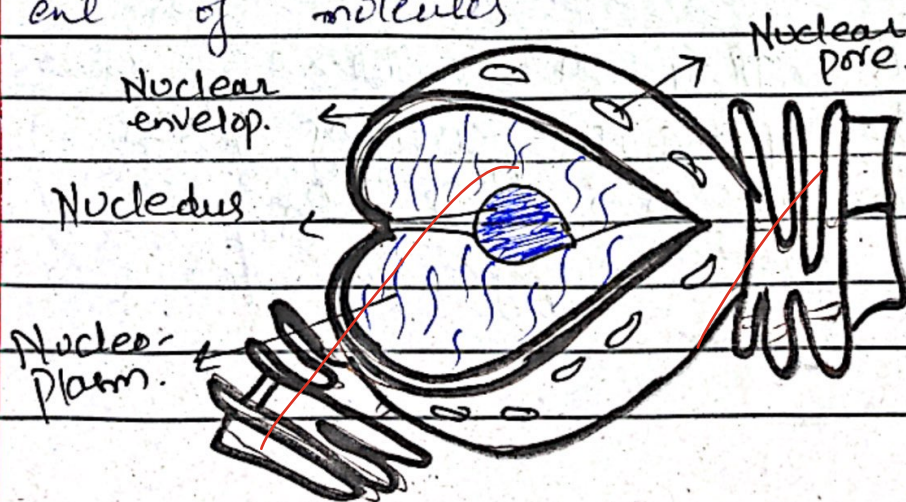 ent of molecules
Nuclear
pore.
Nuclear
envelop.
Nucledus
Nucleo-
plasm.